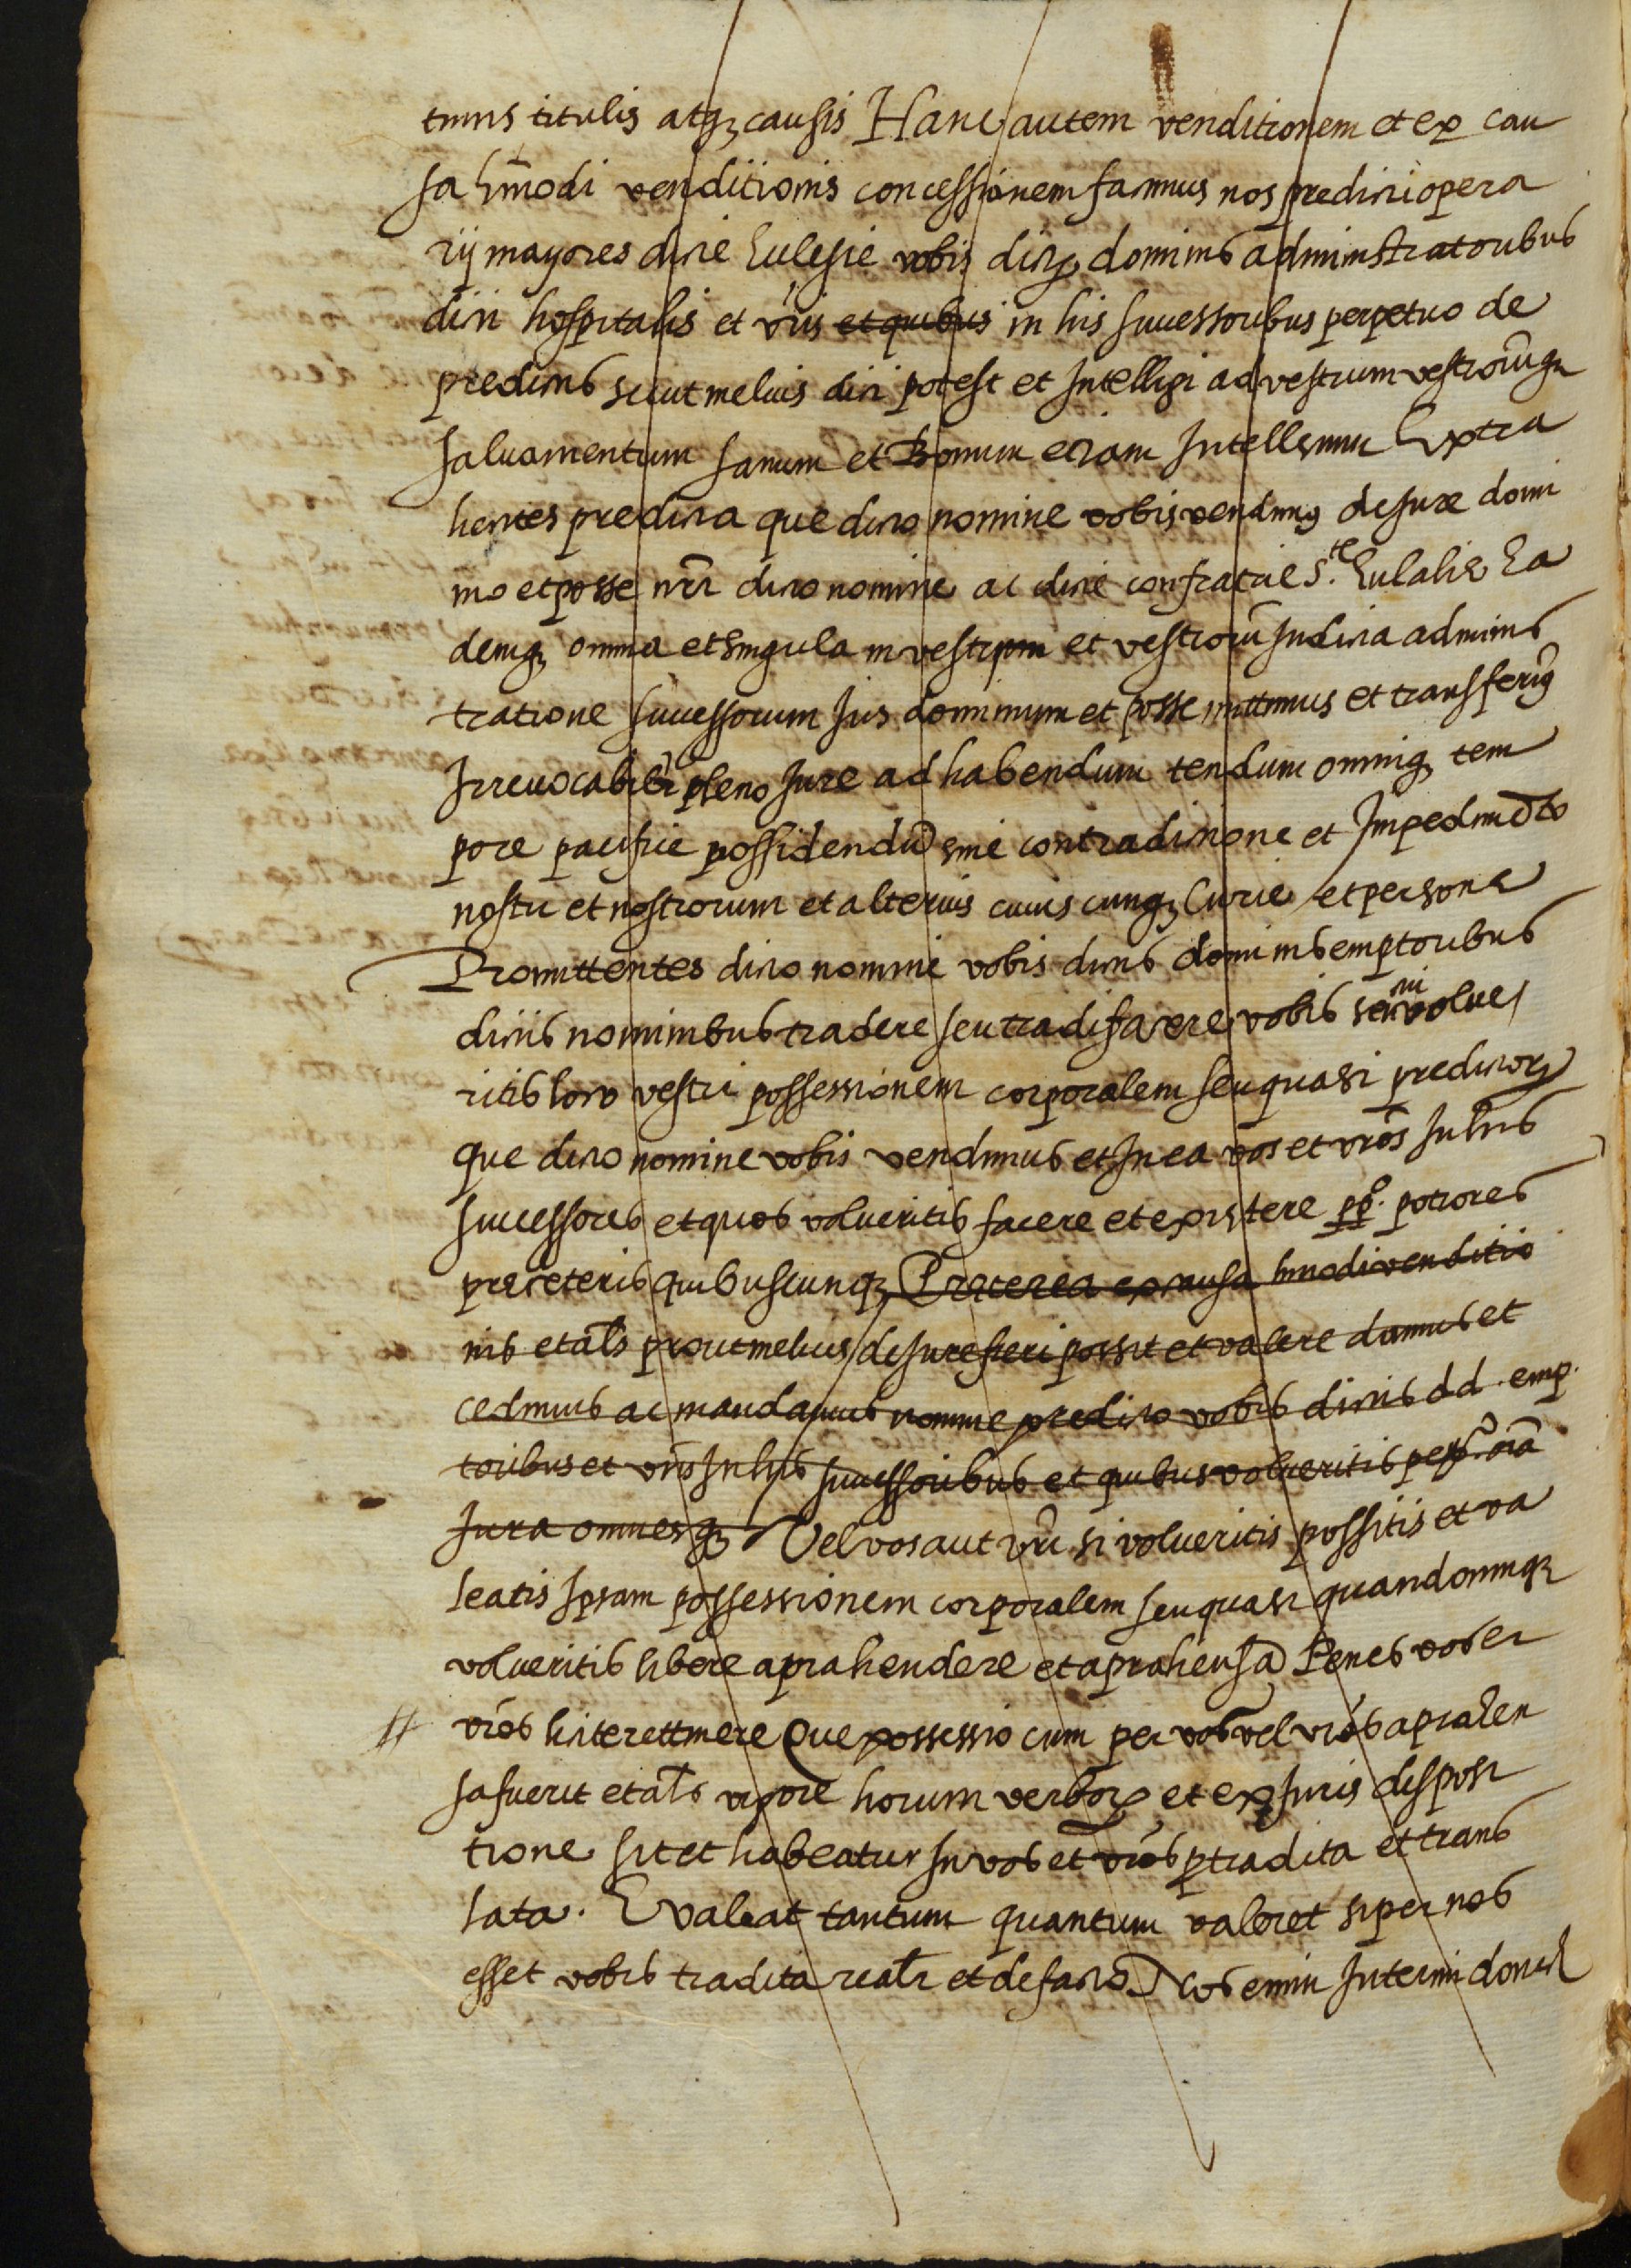 timis titulis atq₃ causis Hanc autem venditionem et ex cau
sa hm̄odi venditionis concessionem facimus nos predicti opera
rij mayores dicte Eclesie vobis dictis dominis administratoribus
dicti hospitalis et vr̄is et quibus in his successoribus perpetuo de
predictis sicut melius dici potest et Intelligi ad vestrum vestrorūq₃
salvamentum sanum et Bonum etiam Intellectum Extra
hentes predicta que dicto nomine vobis vendimꝰ de Jure domi
nio et posse nr̄i dicto nomine ac dicte confratrie S.te Eulalie Ea
demq₃ omnia et singula in vestrum et vestrorū In dicta adminis
tratione successorum Jus dominium et posse mittimus et transferimꝰ
Irrevocabilr̄ pleno Jure ad habendum tendum omniq₃ tem
pore pacifice possidendū sine contradictione et Impedimēto
nostri et nostrorum et alterius cuius cunq₃ Curie et persone
Promittentes dicto nomine vobis dictis dominis emptoribus
dictis nominibus tradere seu tradi facere vobis seu cui volue
ritis loco vestri possessionem corporalem seu quasi predictorꝝ
que dicto nomine vobis vendimus et In ea vos et vr̄os In his
successores et quos volueritis facere et existere pp̄o. potiores
pre ceteris quibuscunq₃ Preterea ex causa hm̄odi venditio
nis et al̄s prout melius de Jure fieri possit et valere damus et
cedimus ac mandamus nomine predicto vobis dictis dd. emp.
toribus et vr̄is In his successoribus et quibus volueritis perpō. oīa
Jura omnesq₃ Vel vos aut vr̄i si volueritis possitis et va
leatis Ipsam possessionem corporalem seu quasi quandocunq₃
volueritis libere aprahendere et aprahensā Penes vos et
vr̄os licite rettinere Que possessio cum per vos vel vr̄os aprahen
sa fuerit et al̄s vigore horum verborꝝ et ex Juris disposi
tione sit et habeatur In vos et vr̄os p tradita et trans
lata. Et valeat tantum quantum valeret si per nos
esset vobis tradita realr̄ et de facto Nos enim Interim donec